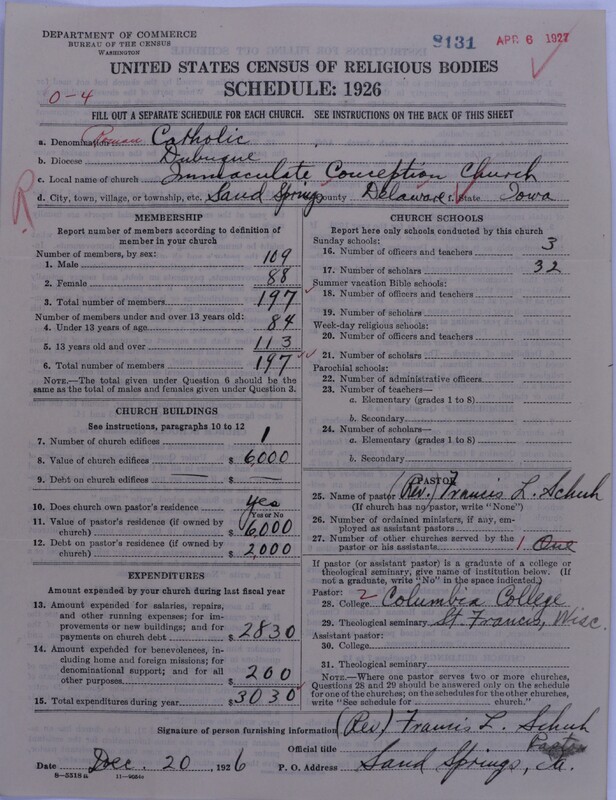 DEPARTMENT OF COMMERCE
BUREAU OF THE CENSUS
WASHINGTON
8131
APR 6 1927
UNITED STATES CENSUS OF RELIGIOUS BODIES
SCHEDULE: 1926
0-4
FILL OUT A SEPARATE SCHEDULE FOR EACH CHURCH. SEE INSTRUCTIONS ON THE BACK OF THIS SHEET
a. Denomination Roman Catholic
b. Diocese Dubuque
c. Local name of church Immaculate Conception Church
d. City, town, village, or township, etc. Sand Springs County Delaware State Iowa
R
MEMBERSHIP
Report number of members according to definition of
member in your church
Number of members, by sex:
1. Male 109
2. Female 88
3. Total number of members 197
Number of members under and over 13 years old:
4. Under 13 years of age 84
5. 13 years old and over 113
6. Total number of members 197
NOTE.—The total given under Question 6 should be
same as the total of males and females given under Question 3.
CHURCH BUILDINGS
See instructions, paragraphs 10 to 12
7. Number of church edifices 1
8. Value of church edifices $ 6,000
9. Debt on church edifices — $ —
10. Does church own pastor's residence yes
Yes or No
11. Value of pastor's residence (if owned by
church) $ 6,000
12. Debt on pastor's residence (if owned by
church) $ 2,000
EXPENDITURES
Amount expended by your church during last fiscal year
13. Amount expended for salaries, repairs,
and other running expenses; for im-
provements or new buildings; and for
payments on church debt $ 2830
14. Amount expended for benevolences, in-
cluding home and foreign missions; for
denominational support; and for all
other purposes $ 200
15. Total expenditures during year $ 3030
CHURCH SCHOOLS
Report here only schools conducted by this church
Sunday schools:
16. Number of officers and teachers 3
17. Number of scholars 32
Summer vacation Bible schools:
18. Number of officers and teachers
19. Number of scholars
Week-day religious schools:
20. Number of officers and teachers
21. Number of scholars
Parochial schools:
22. Number of administrative officers
23. Number of teachers—
a. Elementary (grades 1 to 8)
b. Secondary
24. Number of scholars—
a. Elementary (grades 1 to 8)
b. Secondary
PASTOR
25. Name of pastor (Rev.) Francis L. Schuh
(If church has no pastor, write "None")
26. Number of ordained ministers, if any, em-
ployed as assistant pastors
27. Number of other churches served by the
pastor or his assistants 1 One
If pastor (or assistant pastor) is a graduate of a college or
theological seminary, give name of institution below. (If
not a graduate, write "No" in the space indicated.)
Pastor: 2
28. College Columbia College
29. Theological seminary St. Francis, Wisc.
Assistant pastor:
30. College
31. Theological seminary
NOTE.—Where one pastor serves two or more churches,
Questions 28 and 29 should be answered only on the schedule
for one of the churches; on schedules for the other churches,
write "See schedule for church."
Signature of person furnishing information (Rev.) Francis L. Schuh
Official title Pastor
Date Dec. 20, 1926 P. O. Address Sand Springs, Ia.